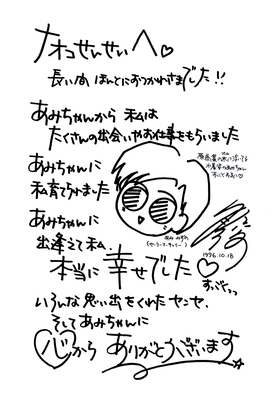 ナオコせんせいへ♡
長い間 ほんとにおつかれさまでした!!
あみちゃんから 私は
たくさんの出会いやお仕事をもらいました
あみちゃんに
私育てられました
あみちゃんに
出逢えて私、
本当に幸せでした♡
1996.10.18
いろんな思い出をくれたセンセ、
そしてあみちゃんに
心から ありがとうございます